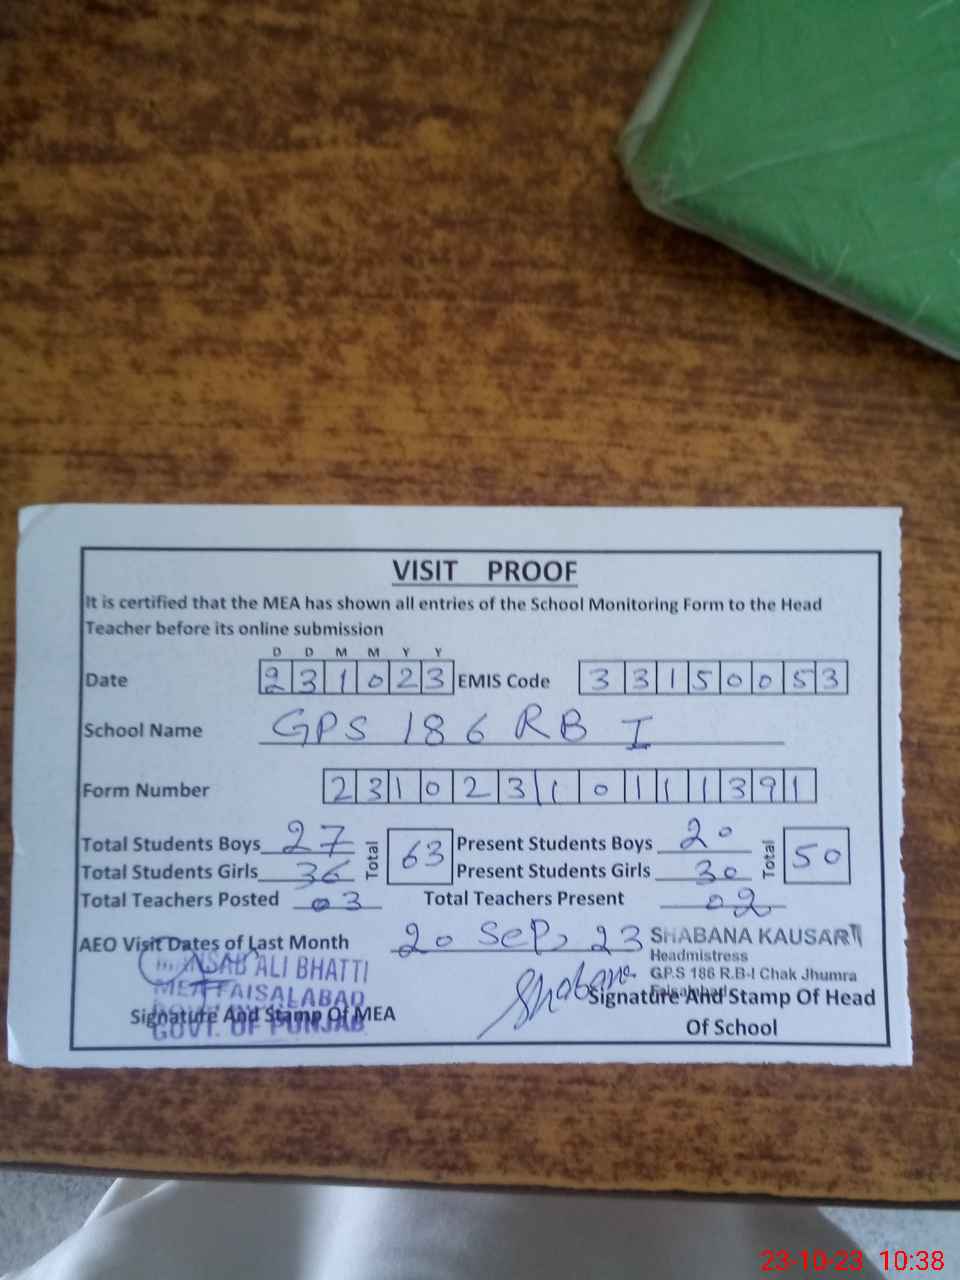 VISIT PROOF
It is certified that the MEA has shown all entries of the School Monitoring Form to the Head
Teacher before its online submission
D D M M Y Y
Date 2 3 1 0 2 3 EMIS Code 3 3 1 5 0 0 5 3
School Name GPS 186 RB I
Form Number 2 3 1 0 2 3 1 1 0 1 1 1 3 9 1
Total Students Boys 27 Total 63 Present Students Boys 20 Total 50
Total Students Girls 36 Present Students Girls 30
Total Teachers Posted 03 Total Teachers Present 02
AEO Visit Dates of Last Month 20 Sep, 23 SHABANA KAUSAR
Headmistress
ALI BHATTI G.P.S 186 R.B-I Chak Jhumra
MEA FAISALABAD Faisalabad
Shabana
Signature And Stamp Of MEA Signature And Stamp Of Head
GOVT. OF PUNJAB Of School
23-10-23 10:38